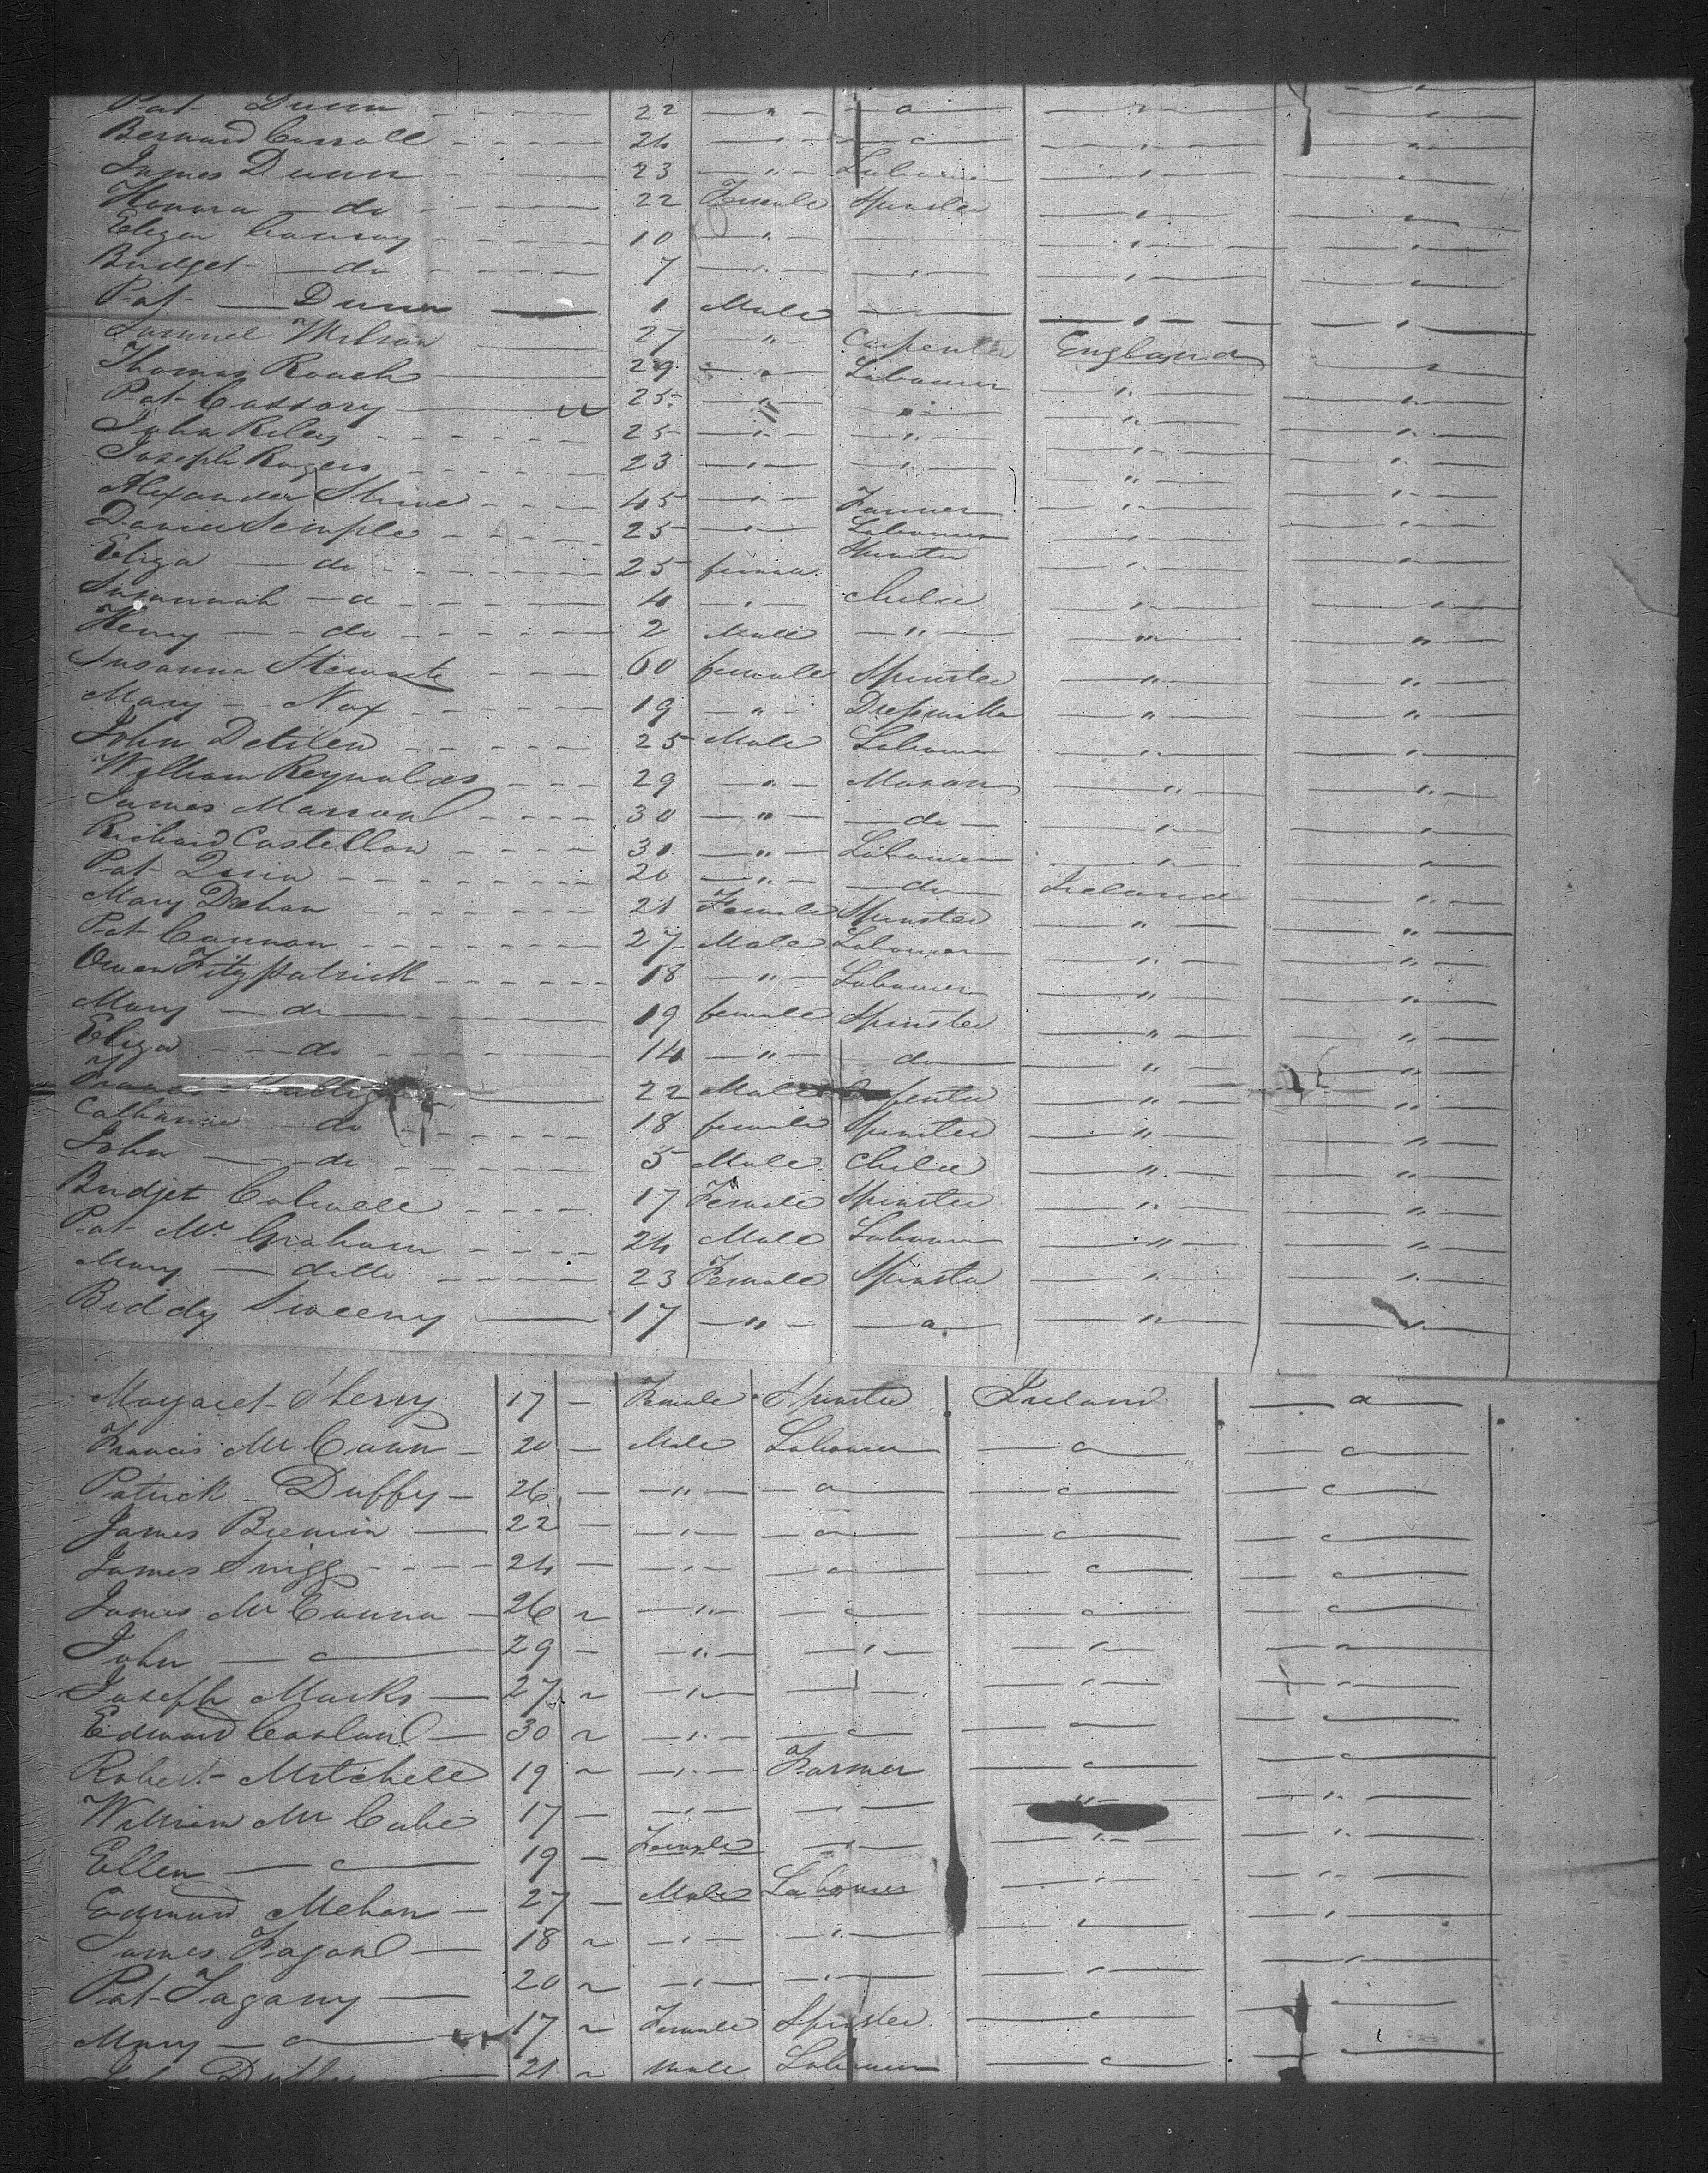 Pat Dunn 22 " a " "
Bernard Carroll 24 " c " "
James Dunn 23 " Labourer " "
Honora do 22 Female Spinster " "
Eliza Conroy 10 " " "
Bridget do 7 " " " "
Pat Dunn 1 Male " " "
Samuel Wilson 27 " Carpenter England "
Thomas Roach 29 " Labourer " "
Pat 25 " " " "
John Riley 25 " " " "
Joseph Rogers 23 " " " "
Alexander 45 " Farmer " "
David Semple 25 " Labourer " "
Eliza do 25 female Spinster " "
Susannah a 4 " Child " "
Henry do 2 Male " " "
Susanna Stewart 60 female Spinster " "
Mary Nox 19 " " "
John 25 Male Labourer " "
William Reynolds 29 " Mason " "
James 30 " do " "
Richard Castellan 30 " Labourer " "
Pat Quin 20 " do Ireland "
Mary 21 Female Spinster " "
Pat Cannon 27 Male Labourer " "
Owen Fitzpatrick 18 " Labourer " "
Mary do 19 female Spinster " "
Eliza do 14 " do " "
Francis 22 Male " "
Catharine do 18 female Spinster " "
John do 5 Male Child " "
Bridget Colwell 17 Female Spinster " "
Pat Mc Graham 24 Male Labourer " "
Mary ditto 23 Female Spinster " "
Biddy Sweeny 17 " a " "
Margaret Sherry 17 Female Spinster Ireland a
Francis Mc Cann 20 Male Labourer a a
Patrick Duffy 26 " a c c
James 22 " a a c
James 24 " a c c
James Mc Canna 26 " c c c
John c 29 " " " "
Joseph Marks 27 " " " "
Edward 30 " c a c
Robert Mitchell 19 " Farmer c c
William Mc Cabe 17 " " " "
Ellen c 19 Female " " "
Edmund Mehan 27 Male Labourer " "
James Fagan 18 " " " "
Pat 20 " " " "
Mary a 17 Female Spinster c
Duffy 21 male Labourer c